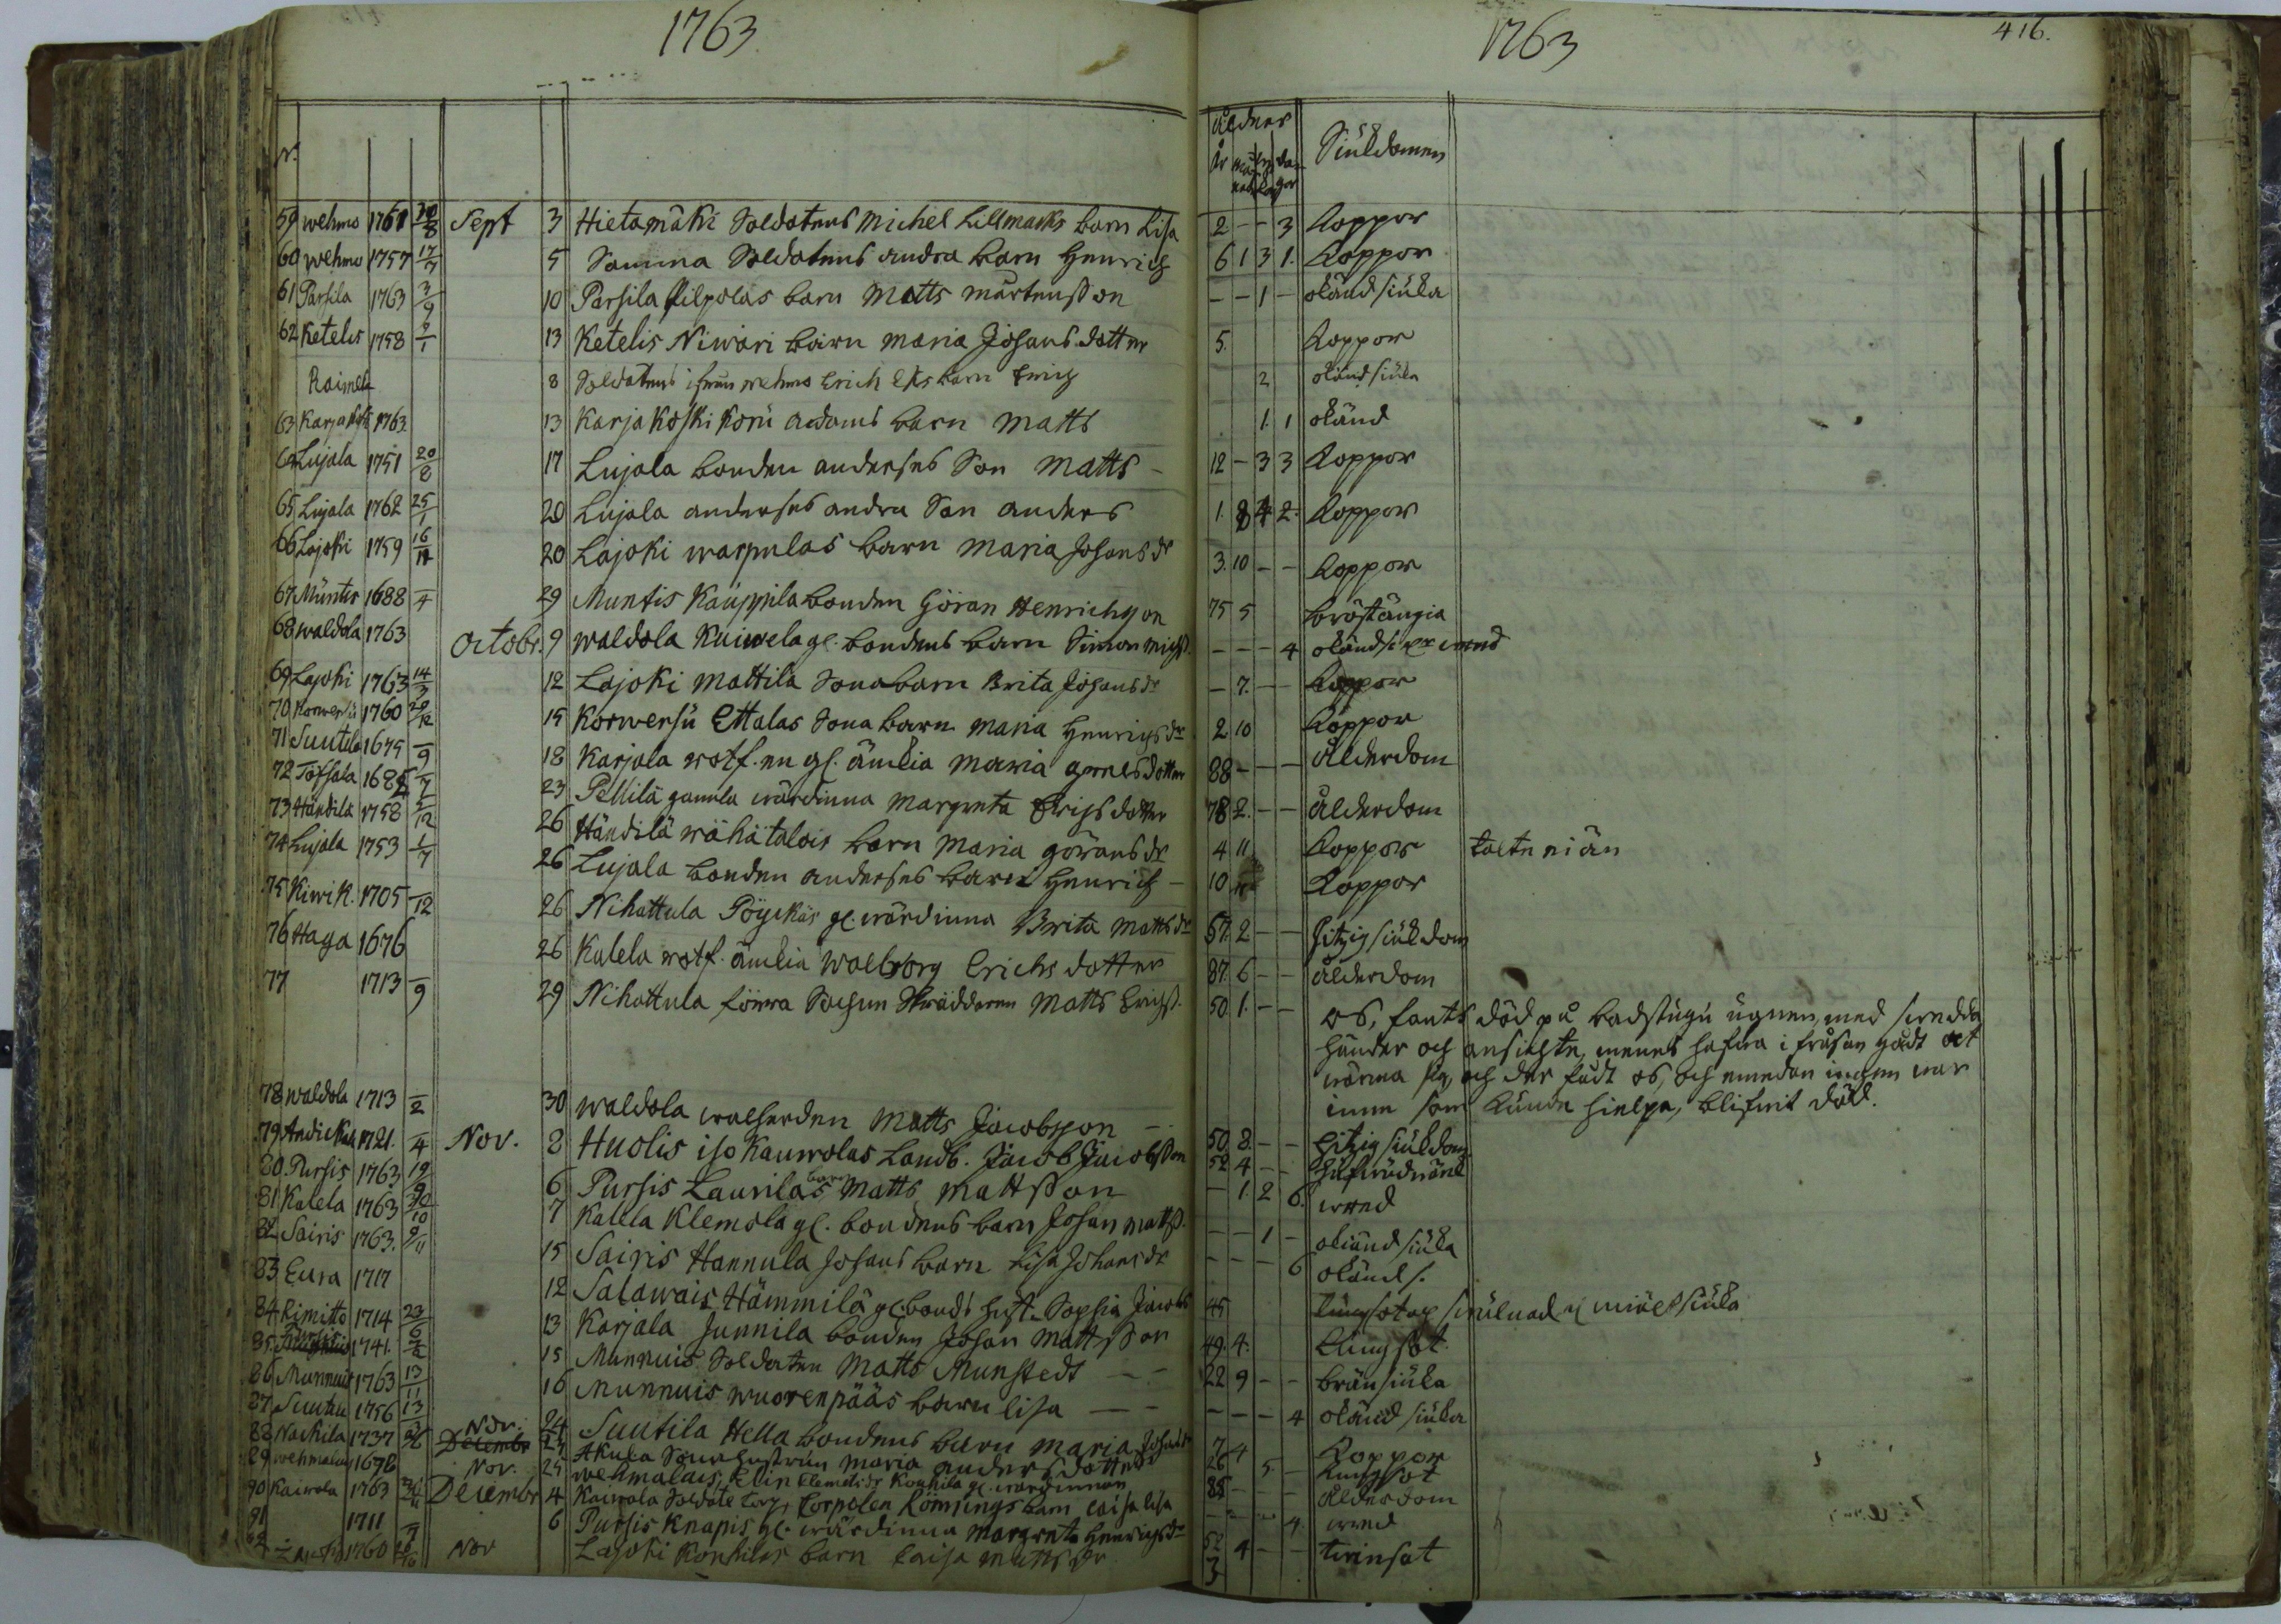 1763
1763
416.
N:
Åldrer
År
Siukdomen
59 wehmo 1761 30/8 Sept 3 Hietamäki Soldatens Michel Lillmarks barn Lisa 2 - - 3 Koppor
60 wehmo 1757 17/7 5 Samma Soldatens andra barn Henrich 6 1 3 1. Koppor
61 Parsila 1763 3/9 10 Parsila filpolas barn Matts Mårtensson - - 1 - okänd siuka
62 Ketelis 1758 /1 13 Ketelis Niwari barn Maria Johans dotter 5. Koppor
Raimela 8 Soldatens ifrån wehmo Erich Eks barn 2 okänd siuka
63 Karjakoski 1763 13 Karjakoski Korü Adams barn Matts 1. 1 okänd
64 Lujala 1751 20/8 17 Lujala bonden Anderses Son Matts - 12 - 3 3 Koppor
65 Lujala 1762 25/1 20 Lujala Anderses andra Son Anders 1. 8 4 2. Koppor
66 Lajoki 1759 16/11 20 Lajoki warpulas barn Maria Johans dr 3. 10 - - Koppor
67 Müntis 1688 /4 29 Muntis Kauppila bonden Göran Henrichson 75 5 bröstängia
68 waldola 1763 Octobr. 9 waldola Kaiwela gl. bondens barn Simon Michss. - - - 4 okänd
69 Lajoki 1763 14/3 12 Lajoki Mattila Sonabarn Brita Johansdr - 7. - - Koppor
70 Korwensü 1760 29/12 15 Korwensü Ettalas Sona barn Maria Henrichsdr 2 10 Koppor
71 Suutila 1675 /9 18 Karjala rotf. en gl. änkia Maria dotter 88 - - - Ålderdom
72 Töfsala 1685 /7 23 Pellilä gamla wärdinna Margreta Erichsdotter 78 2. - - Ålderdom
73 Händilä 1758 /12 26 Händilä wähätalois barn Maria Görans dr 4 11 Koppor
74 Lujala 1753 1/7 26 Lujala bonden Anderses barn Henrich - 10 Koppor
75 Kiwik. 1705 /12 26 Nihattula Pöyckäs gl. wärdinna Brita Mattsdr 57. 2 - - hitzig siukdom
76 Haga 1676 26 Kalela rotf. änkia Walborg Erichs dotter 87. 6 - - ålderdom
77 1713 /9 29 Nihattula förra Sochn Skräddaren Matts Erichss. 50 1. - - os, fants död på badstugu ugnen, med swedda
händer och ansichte, menes hafwa i fråsan gådt at
wärma sig, och der fådt os, och emedan ingen war
inne som kunde hielpa, blifwit död.
78 waldola 1713 /2 30 waldola walherden Matts Jacobsson - 50 8. - - hitzig siukdom
79 1721. /4 Nov. 8 Huolis iso Kauwolas Landb. Jacob Jacobsson 52 4 - - hufwudwärk
80 Pursis 1763 19/9 6 Pursis Laurilas barn Matts Mattsson - 1. 2 6. wred
81 Kalela 1763 30/10 7 Kalela Klemola gl. bondens barn Johan Mattss. - - 1 - okiänd siuka
82 Sairis 1763. 9/11 15 Sairis Hannula Johans barn Lisa Johansdr - - - 6 okänd s.
83 Eura 1717 12 Salawais Hämmilä gl. bonds hust. Sophia Jacobs 45 lungsot swulnad i miölt siuka
84 Rimitto 1714 23/6 13 Karjala Junnila bonden Johan Mattsson 49. 4. Lungsot.
85 1741. /2 15 Munnuis Soldaten Matts Munstedt - - 22 9 - - bränsiuka
86 Munnuis 1763 13/11 16 Munnuis wuorenpääs barn Lisa - - - - - 4 okänd siuka
87 Suutila 1756 13/ Nov. 24 Suutila Hella bondens barn Maria Johansdr 7 4 Koppor
88 Nackila 1737 Decembr 24 Akula Sonahustrun Maria Andersdotter 26 5. - Lungsot
89 wehmalais 1678 Nov. 25 wehmalais; Elin Clemetsdr Konkila gl. wärdinnan 85 - - - Ålderdom
90 Kaiwola 1763 Decembr 4 Kaiwola Soldate Corpolen Lönnings barn Caisa Lisa - - - 4 wred
91 1711 /7 6 Pursis Knapis gl. wärdinna Margreta Henrichsdr 52 4 - - twinsot
92 Lajoki 1760 Nov Lajoki Konkilas barn Caisa Matts dr 3